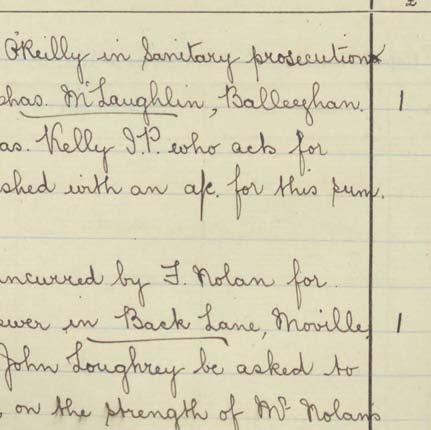 £
O'Reilly in Sanitary prosecution
Chas. McLaughlin, Balleeghan. 1
as. Kelly J.P. who acts for
shed with an a/c. for this sum.
incurred by F. Nolan for
ewer in Back Lane, Moville, 1
John Loughrey be asked to
, on the strength of Mr Nolan's